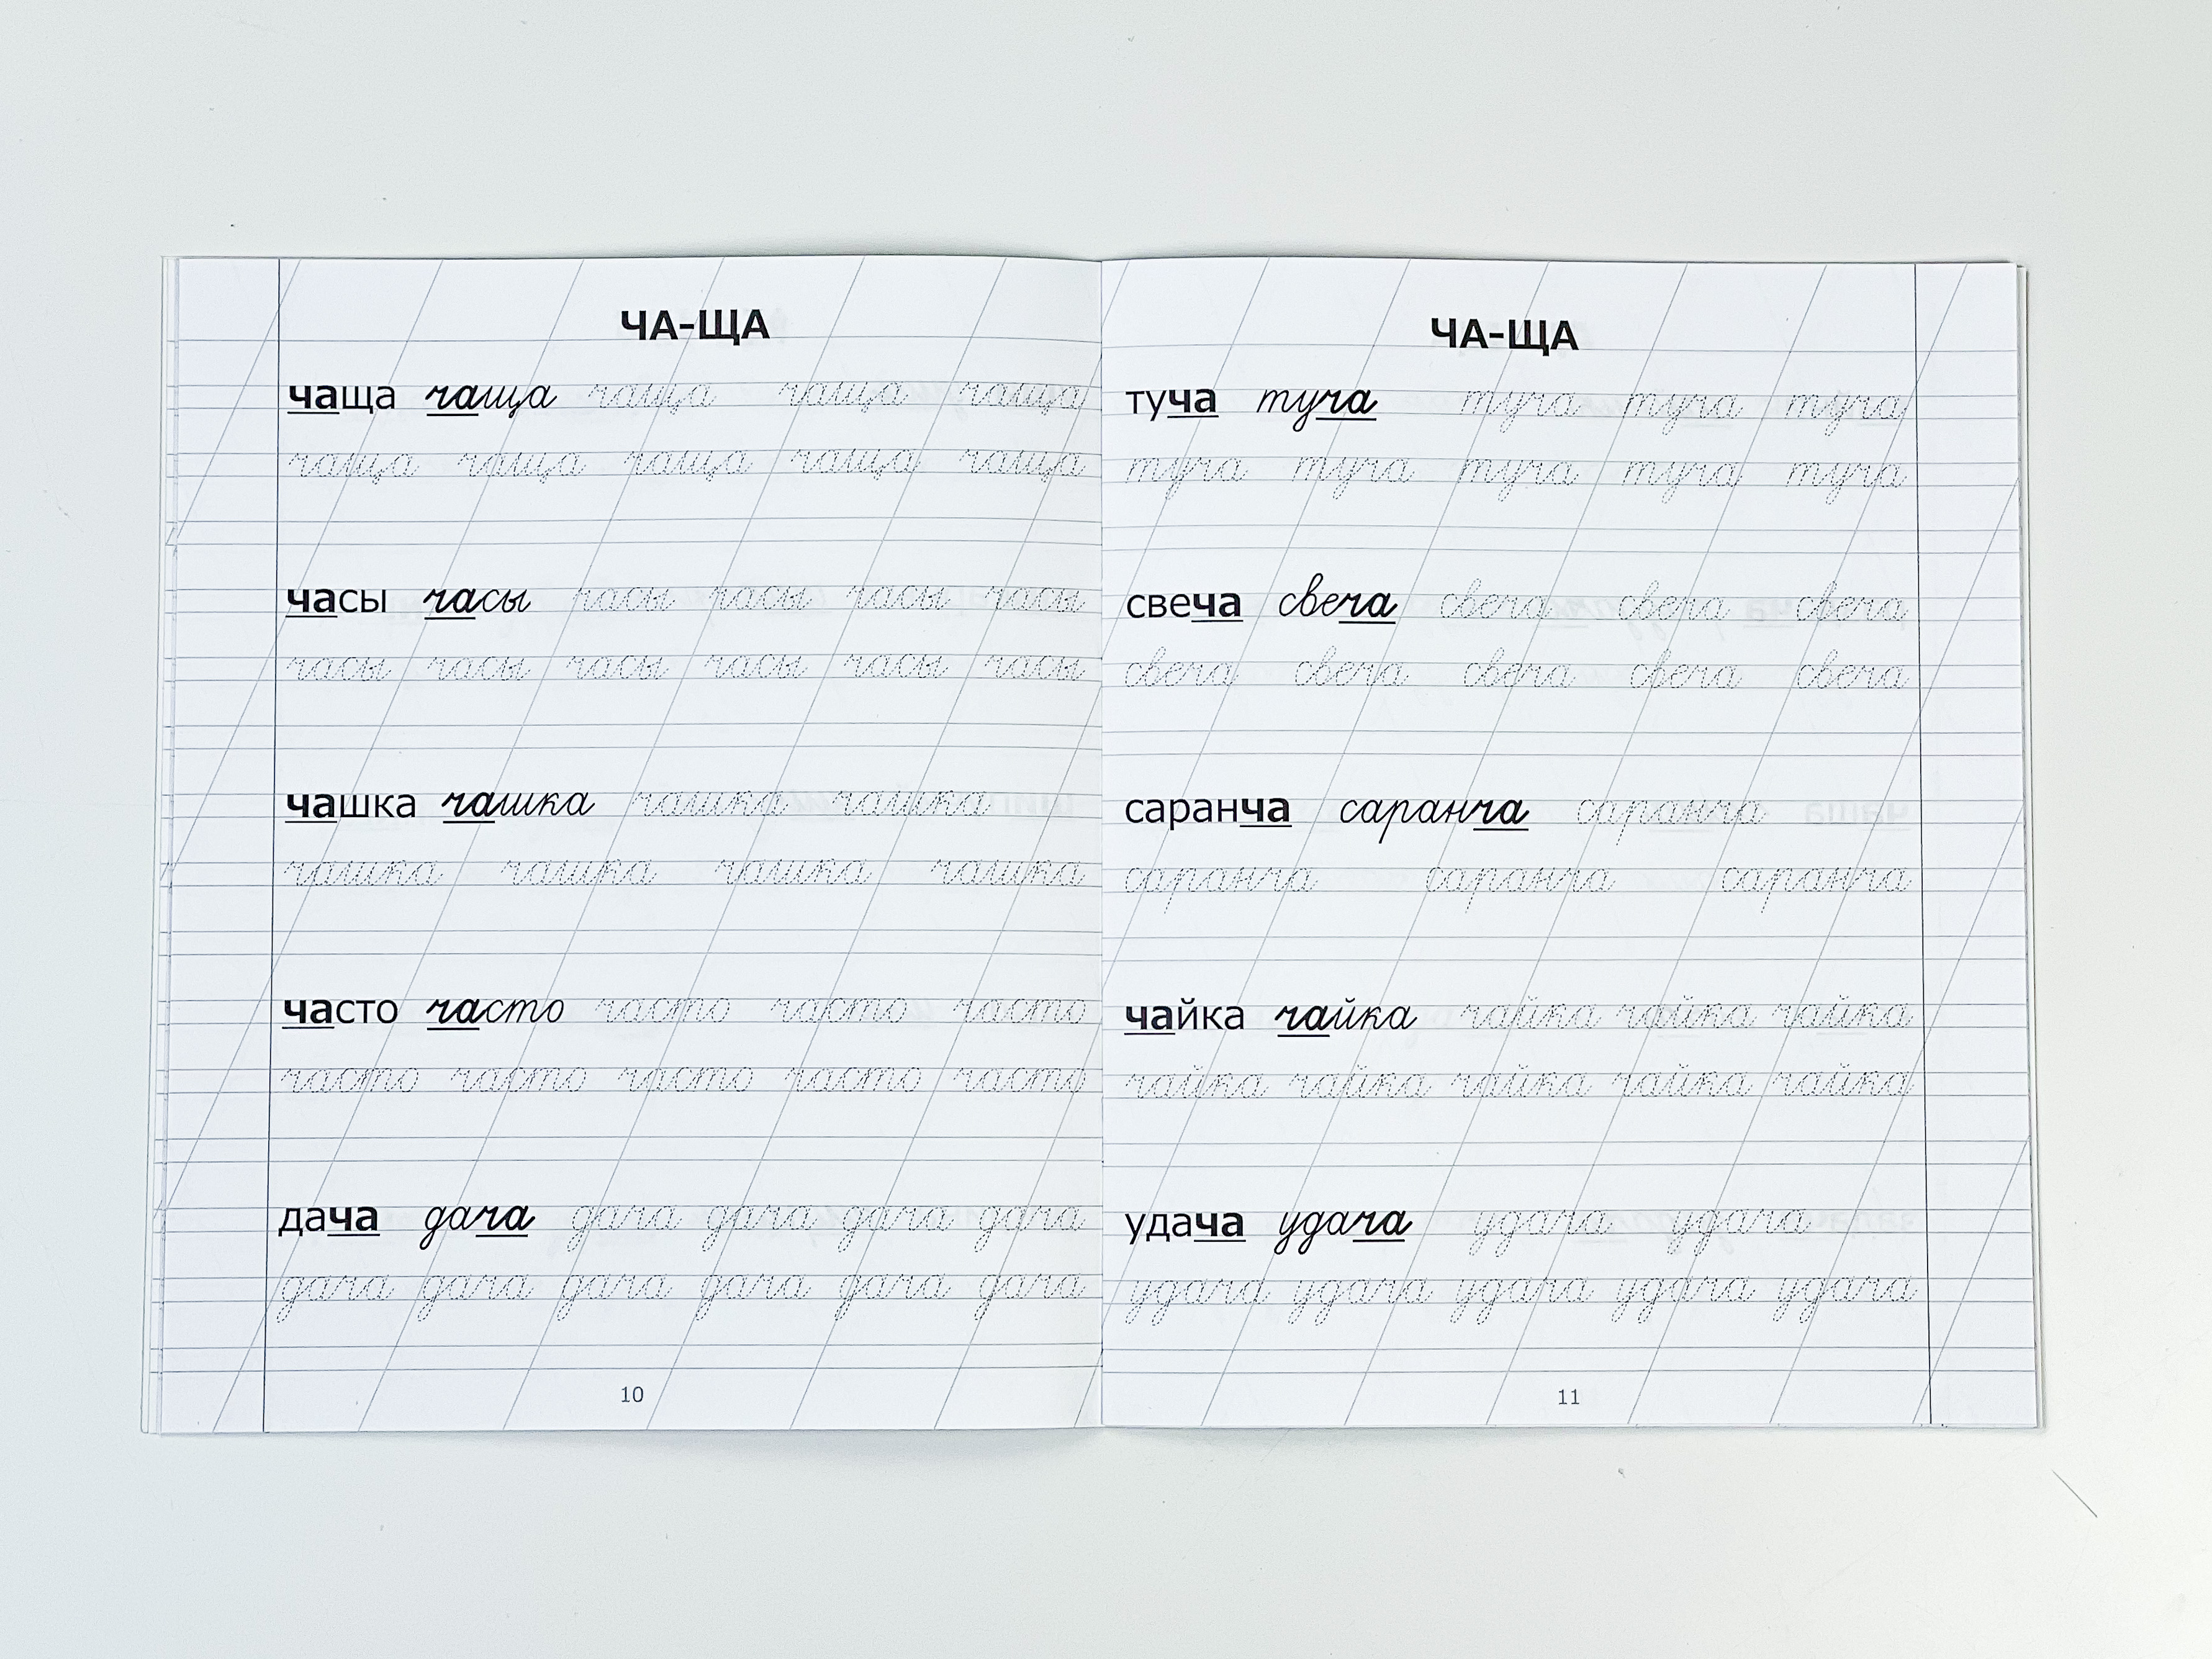 ЧА-ЩА
чаща чаща чаща чаща чаща
чаща чаща чаща чаща чаща
часы часы часы часы часы часы
часы часы часы часы часы часы
чашка чашка чашка чашка
чашка чашка чашка чашка
часто часто часто часто часто
часто часто часто часто часто
дача дача дача дача дача дача
дача дача дача дача дача дача
10
ЧА-ЩА
туча туча туча туча туча
туча туча туча туча туча
свеча свеча свеча свеча свеча
свеча свеча свеча свеча свеча
саранча саранча саранча
саранча саранча саранча
чайка чайка чайка чайка чайка
чайка чайка чайка чайка чайка
удача удача удача удача
удача удача удача удача удача
11